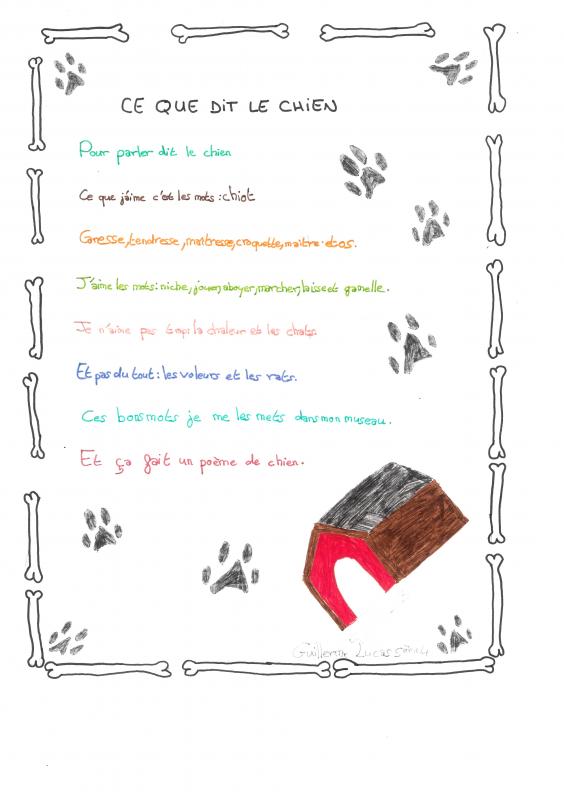 CE QUE DIT LE CHIEN
Pour parler dit le chien
Ce que j'aime c'est les mots : chiot
Caresse, tendresse, maitresse, croquette, maitre et os.
J'aime les mots: niche, jouer, aboyer, marcher, laisse et gamelle.
Je n'aime pas trop: la chaleur et les chats.
Et pas du tout : les voleurs et les rats.
Ces bons mots je me les mets dans mon museau.
Et ça fait un poème de chien.
Lucas